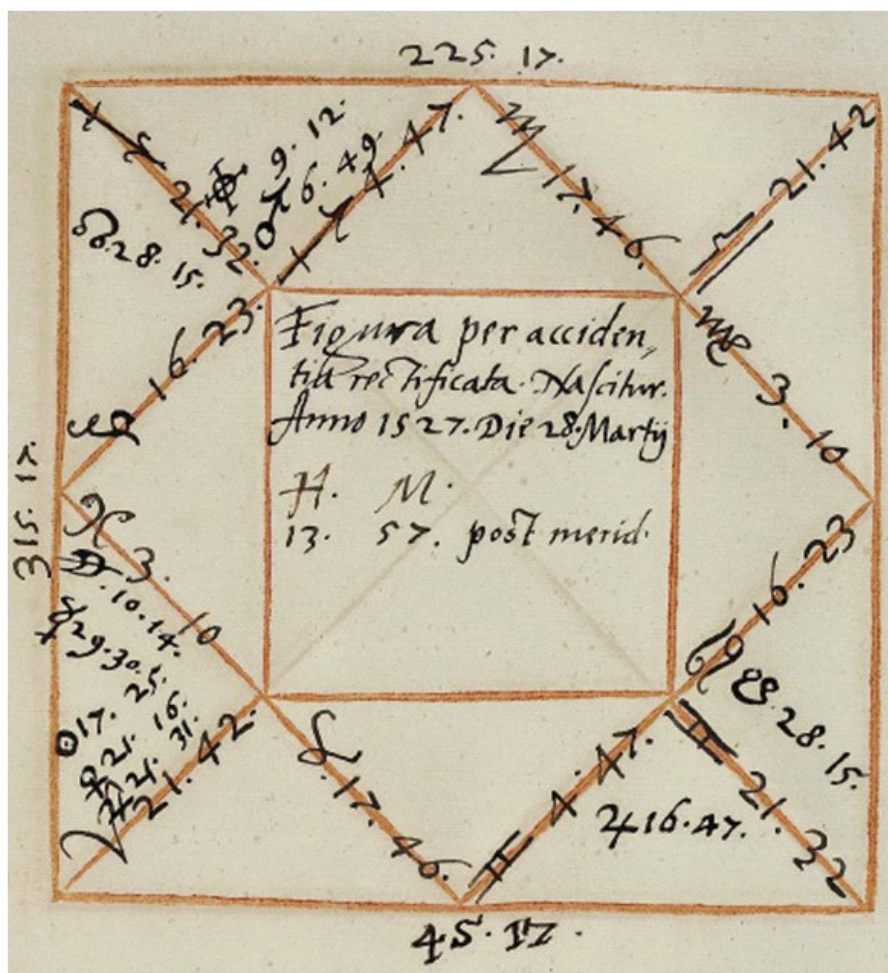 225. 17.
♐ 21. 32.
⊕ 9. 12.
♂ ♐ 6. 49.
♐ 4. 47.
♏ 17. 46.
♎ 21. 42
☊ 28. 15.
16. 23.
♍ 3. 10
Figura per acciden„
tia rectificata. Nascitur.
Anno 1527. Die 28. Martij
H. M.
13. 57. post merid.
315. 17.
♓ 3. 10
10. 14.
☿ 29. 30.
16. 23
♌
☋ 28. 15.
☉ 17. 25.
♀ 21. 16.
21. 31.
♈ 21. 42.
♉ 17. 46.
♊ 4. 47.
♃ 16. 47.
♊ 21. 32
45. 17.